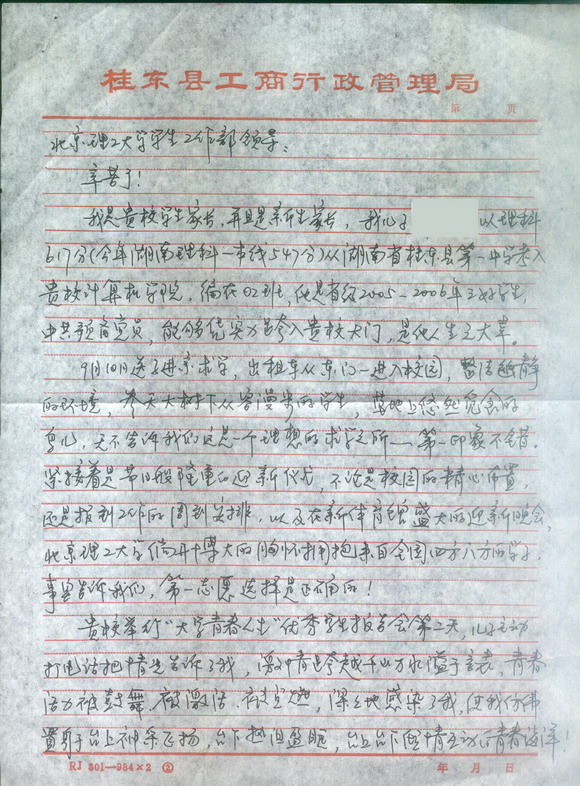 桂东县工商行政管理局
第 页
北京理工大学学生工作部领导:
辛苦了!
我是贵校学生家长,并且是新生家长,我儿子 以理科
617分(今年湖南理科一本线547分)从湖南省桂东县第一中学考入
贵校计算机学院,编在02班,他是省级2005-2006年三好学生,
中共预备党员,能够凭实力跨入贵校大门,是他人生之大幸。
9月10日送子进京求学,出租车从东门一进入校园,整洁幽静
的环境,参天大树下从容漫步的学生,草地上悠然觅食的
鸟儿,无不告诉我们这是一个理想的求学之所——第一印象不错。
紧接着是节日般隆重的迎新仪式,不论是校园的精心布置,
还是报到工作的周到安排,以及在新体育馆盛大的迎新晚会,
北京理工大学偏开博大的胸怀拥抱来自全国四方八方的学子,
事实告诉我们,第一志愿选择是正确的!
贵校举行"大学青春人生"优秀学生报告会第二天,儿子主动
打电话把情况告诉了我,激情跨越千山万水溢于言表,青春
活力被鼓舞、被激活、被点燃,深深地感染了我,使我仿佛
置身于台上神采飞扬,台下热泪盈眶,台上台下倾情互动的青春海洋!
RJ 801—984×2 ②
年 月 日